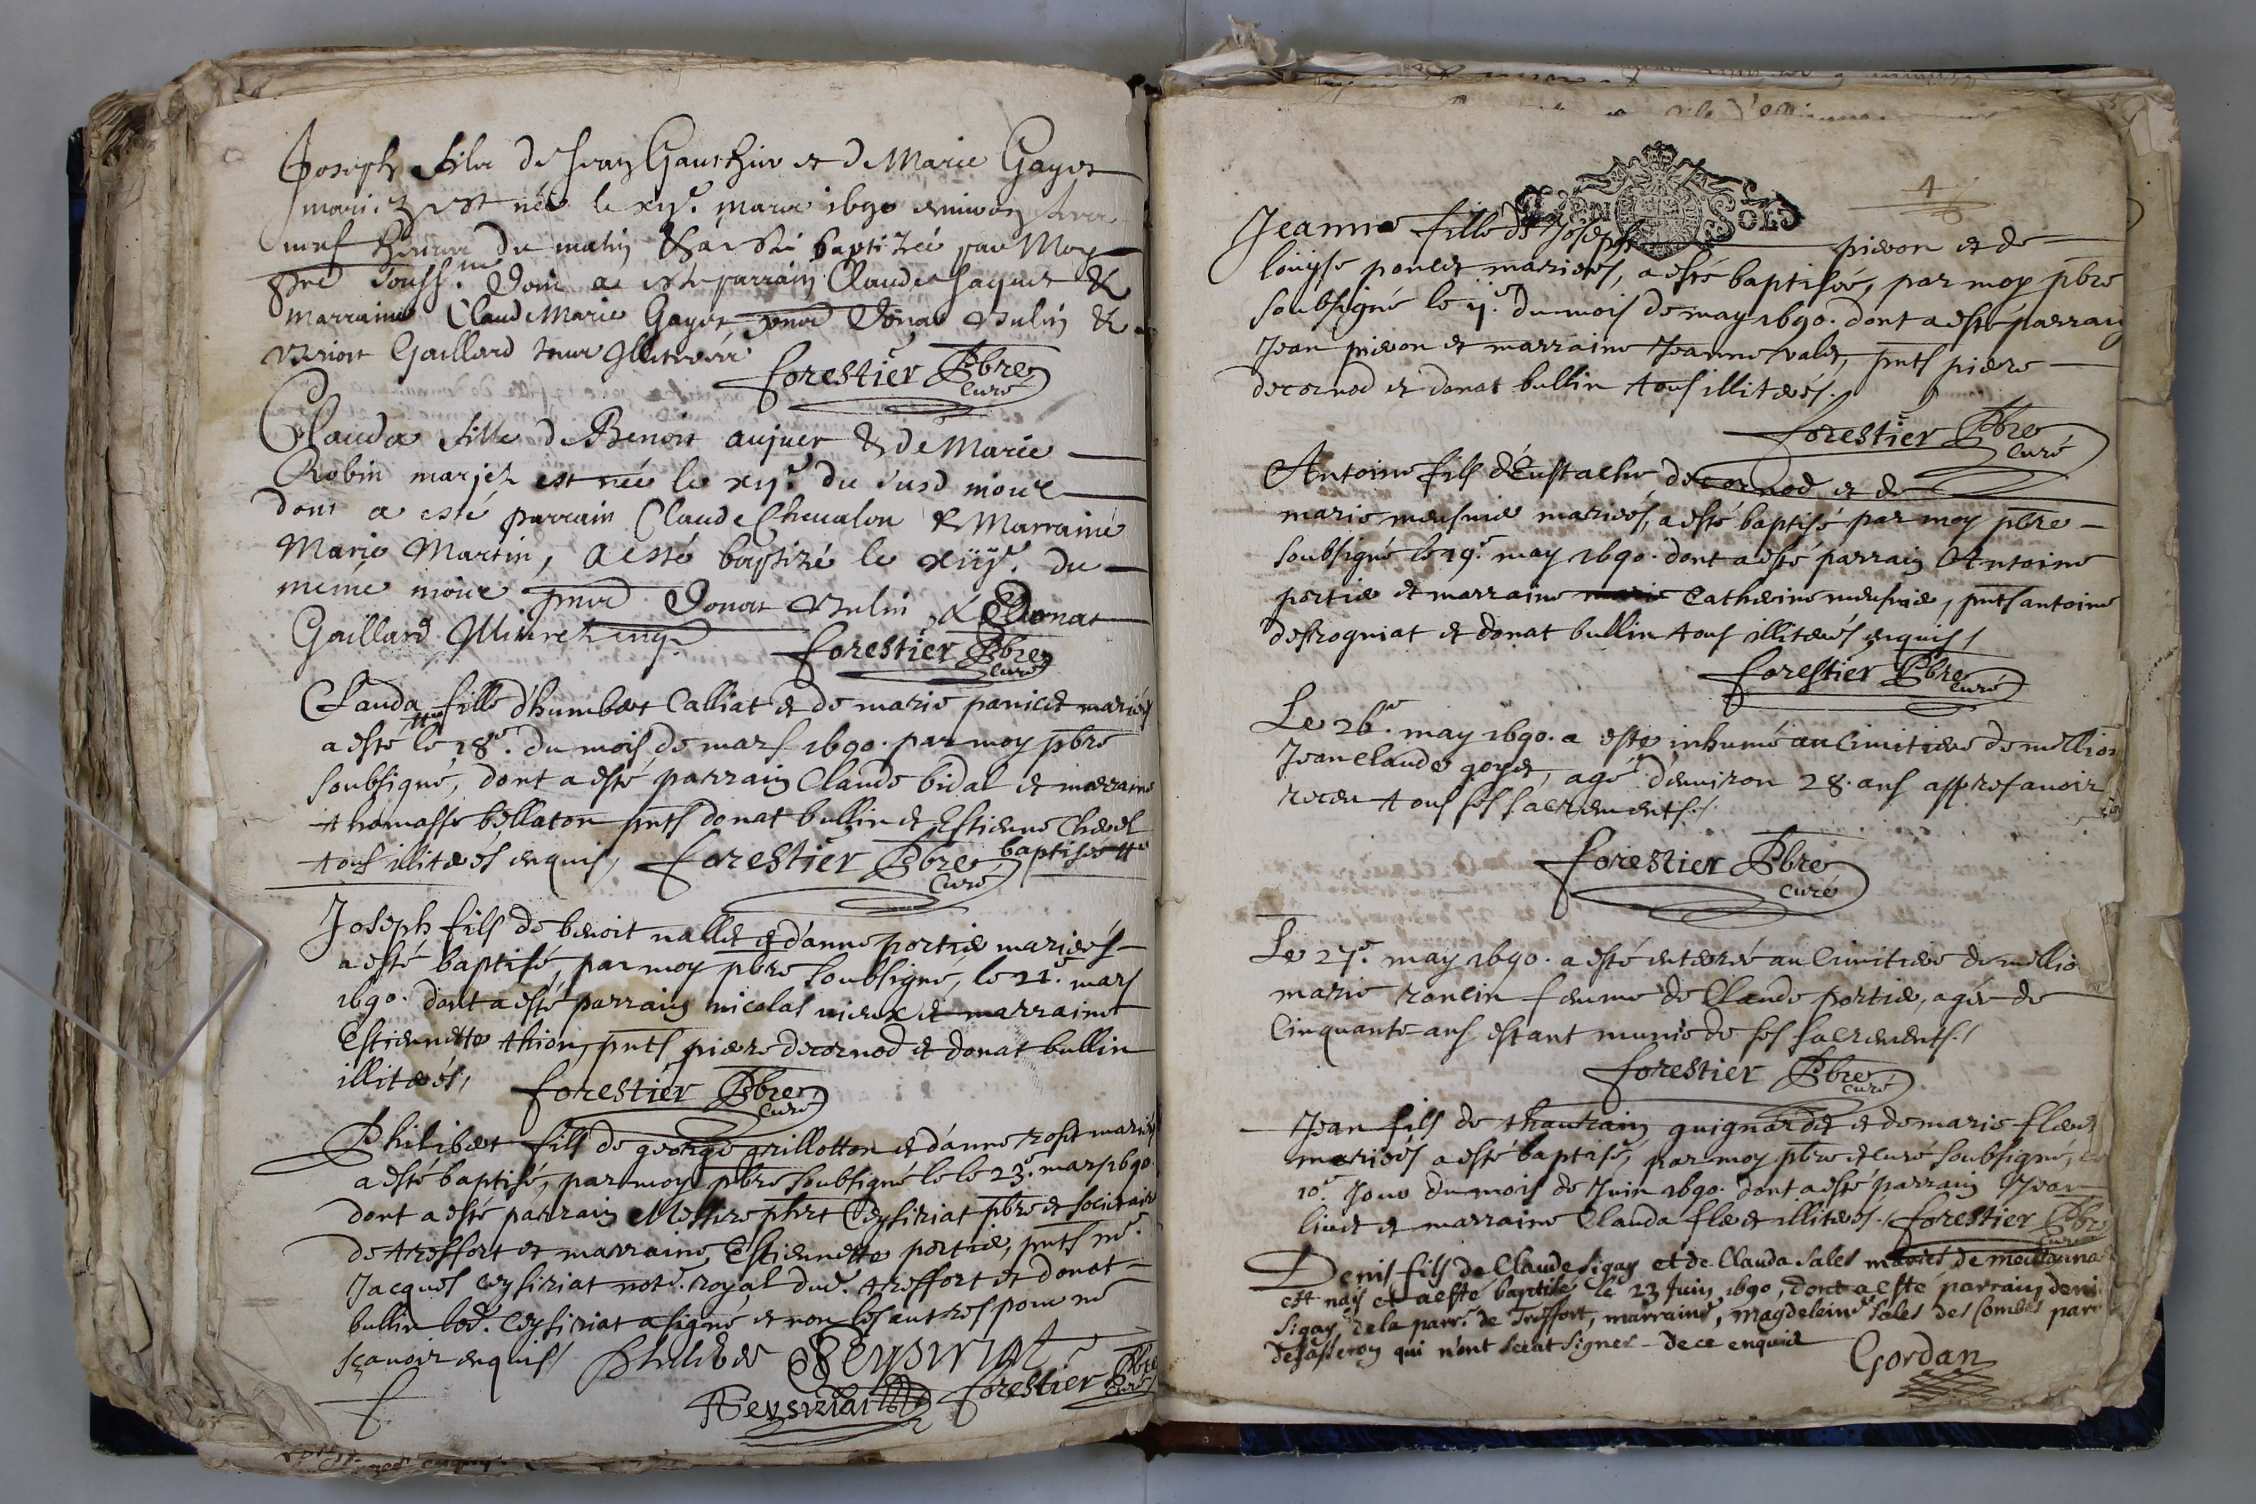 Joseph fils de Jean Gauthier et de Marie Gayet
mariez est né le xije. mars 1690 environ les
neuf heures du matin & a esté baptizée par Moy
pbre soubs.né Dont a esté parrain Claude Jaquet &
marraine Claude Marie Gayet, Donat Bulin &
Gaillard tous illiterés
Forestier Pbre
Curé
Clauda fille de Benoit aujuer & de Marie
Robin mariez est née le xije. du susd mois
dont a esté parrain Claude Chevalon & Marraine
Marie Martin, a esté baptizé le xiije. du
meme mois Donat Bulin & Donat
Gaillard illiterez enq.
Forestier Pbre
Curé
Clauda fille d'humbert Calliat et de marie panicet mariés
a esté le 18e. du mois de mars 1690. par moy pbre
soubsigné, dont a esté parrain Claude bidal et marraine
thomasse bellaton pnts donat bullin et Estienne Chevel
tous illiterés enquis, Forestier Pbre baptisée
Curé
Joseph fils de benoit nallet et d'anne portier mariés
a esté baptisé, par moy pbre soubsigné, le 21e. mars
1690. dont a esté parrain nicolas vieux et marraine
Estiennette thion, pnts piere decornod et donat bullin
illiterés, Forestier Pbre
Curé
Philibert fils de george grillotton et d'anne roset mariés
a esté baptisé, par moy pbre soubsigné le le 23e. mars 1690.
dont a esté parrain Messire phrt Ceysiriat pbre et societaire
de treffort et marraine Estiennette portier, pnts me.
Jacques ceysiriat note. royal dud. treffort et donat
bullin led. Ceysiriat a signé et non les autres pour ne
sçavoir enquis / Philibert Ceysiriat
Ceysiriat Forestier Pbre
Curé
Jeanne fille de Joseph pieron et de
louyse poncet mariés, a esté baptisée, par moy pbre
soubsigné le ije. du mois de may 1690. dont a esté parrain
Jean pieron et marraine Jeanne valet, pnts piere
decornod et donat bullin tous illiterés.
Forestier Pbre
Curé
Antoine fils d'Eustache decornod et de
marie meusnier mariés, a esté baptisé par moy pbre
soubsigné le 19e. may 1690. dont a esté parrain Antoine
portier et marraine marie Catherine meusnier, pnts antoine
desrogniat et donat bullin tous illiterés enquis /
Forestier Pbre
Curé
Le 26e. may 1690. a esté inhumé au Cimitiere de
Jean claude goyet, agé d'environ 28. ans appres avoir
receu tous ses sacrements./
Forestier Pbre
Curé
Le 27e. may 1690. a esté enterré au Cimitiere de
marie roncin femme de Claude portier, agée de
Cinquante ans estant munie de ses sacrements./
Forestier Pbre
Curé
Jean fils de quignardet et de marie
mariés a esté baptisé, par moy pbre et curé soubsigné, le
10e. Jour du mois de Juin 1690. dont a esté parrain Jean
livet et marraine Clauda illiterés./ Forestier Pbre
Curé
Denis fils de Claude Sigay et de Clauda Sales mariés de
est nay et a esté baptisé le 23 Juin 1690, dont a esté parrain denis
Sigay de la parr. de Treffort, marraine, Magdeleine Sales des Combes parr
qui n'ont sceut signer - de ce enquis
Gordan